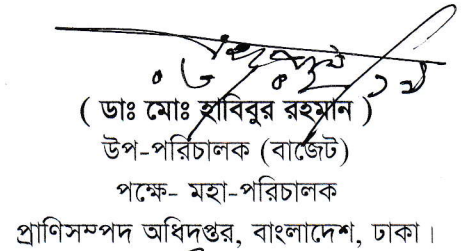 ( ডাঃ মোঃ হাবিবুর রহমান )
উপ-পরিচালক (বাজেট)
পক্ষে- মহা-পরিচালক
প্রাণিসম্পদ অধিদপ্তর, বাংলাদেশ, ঢাকা।